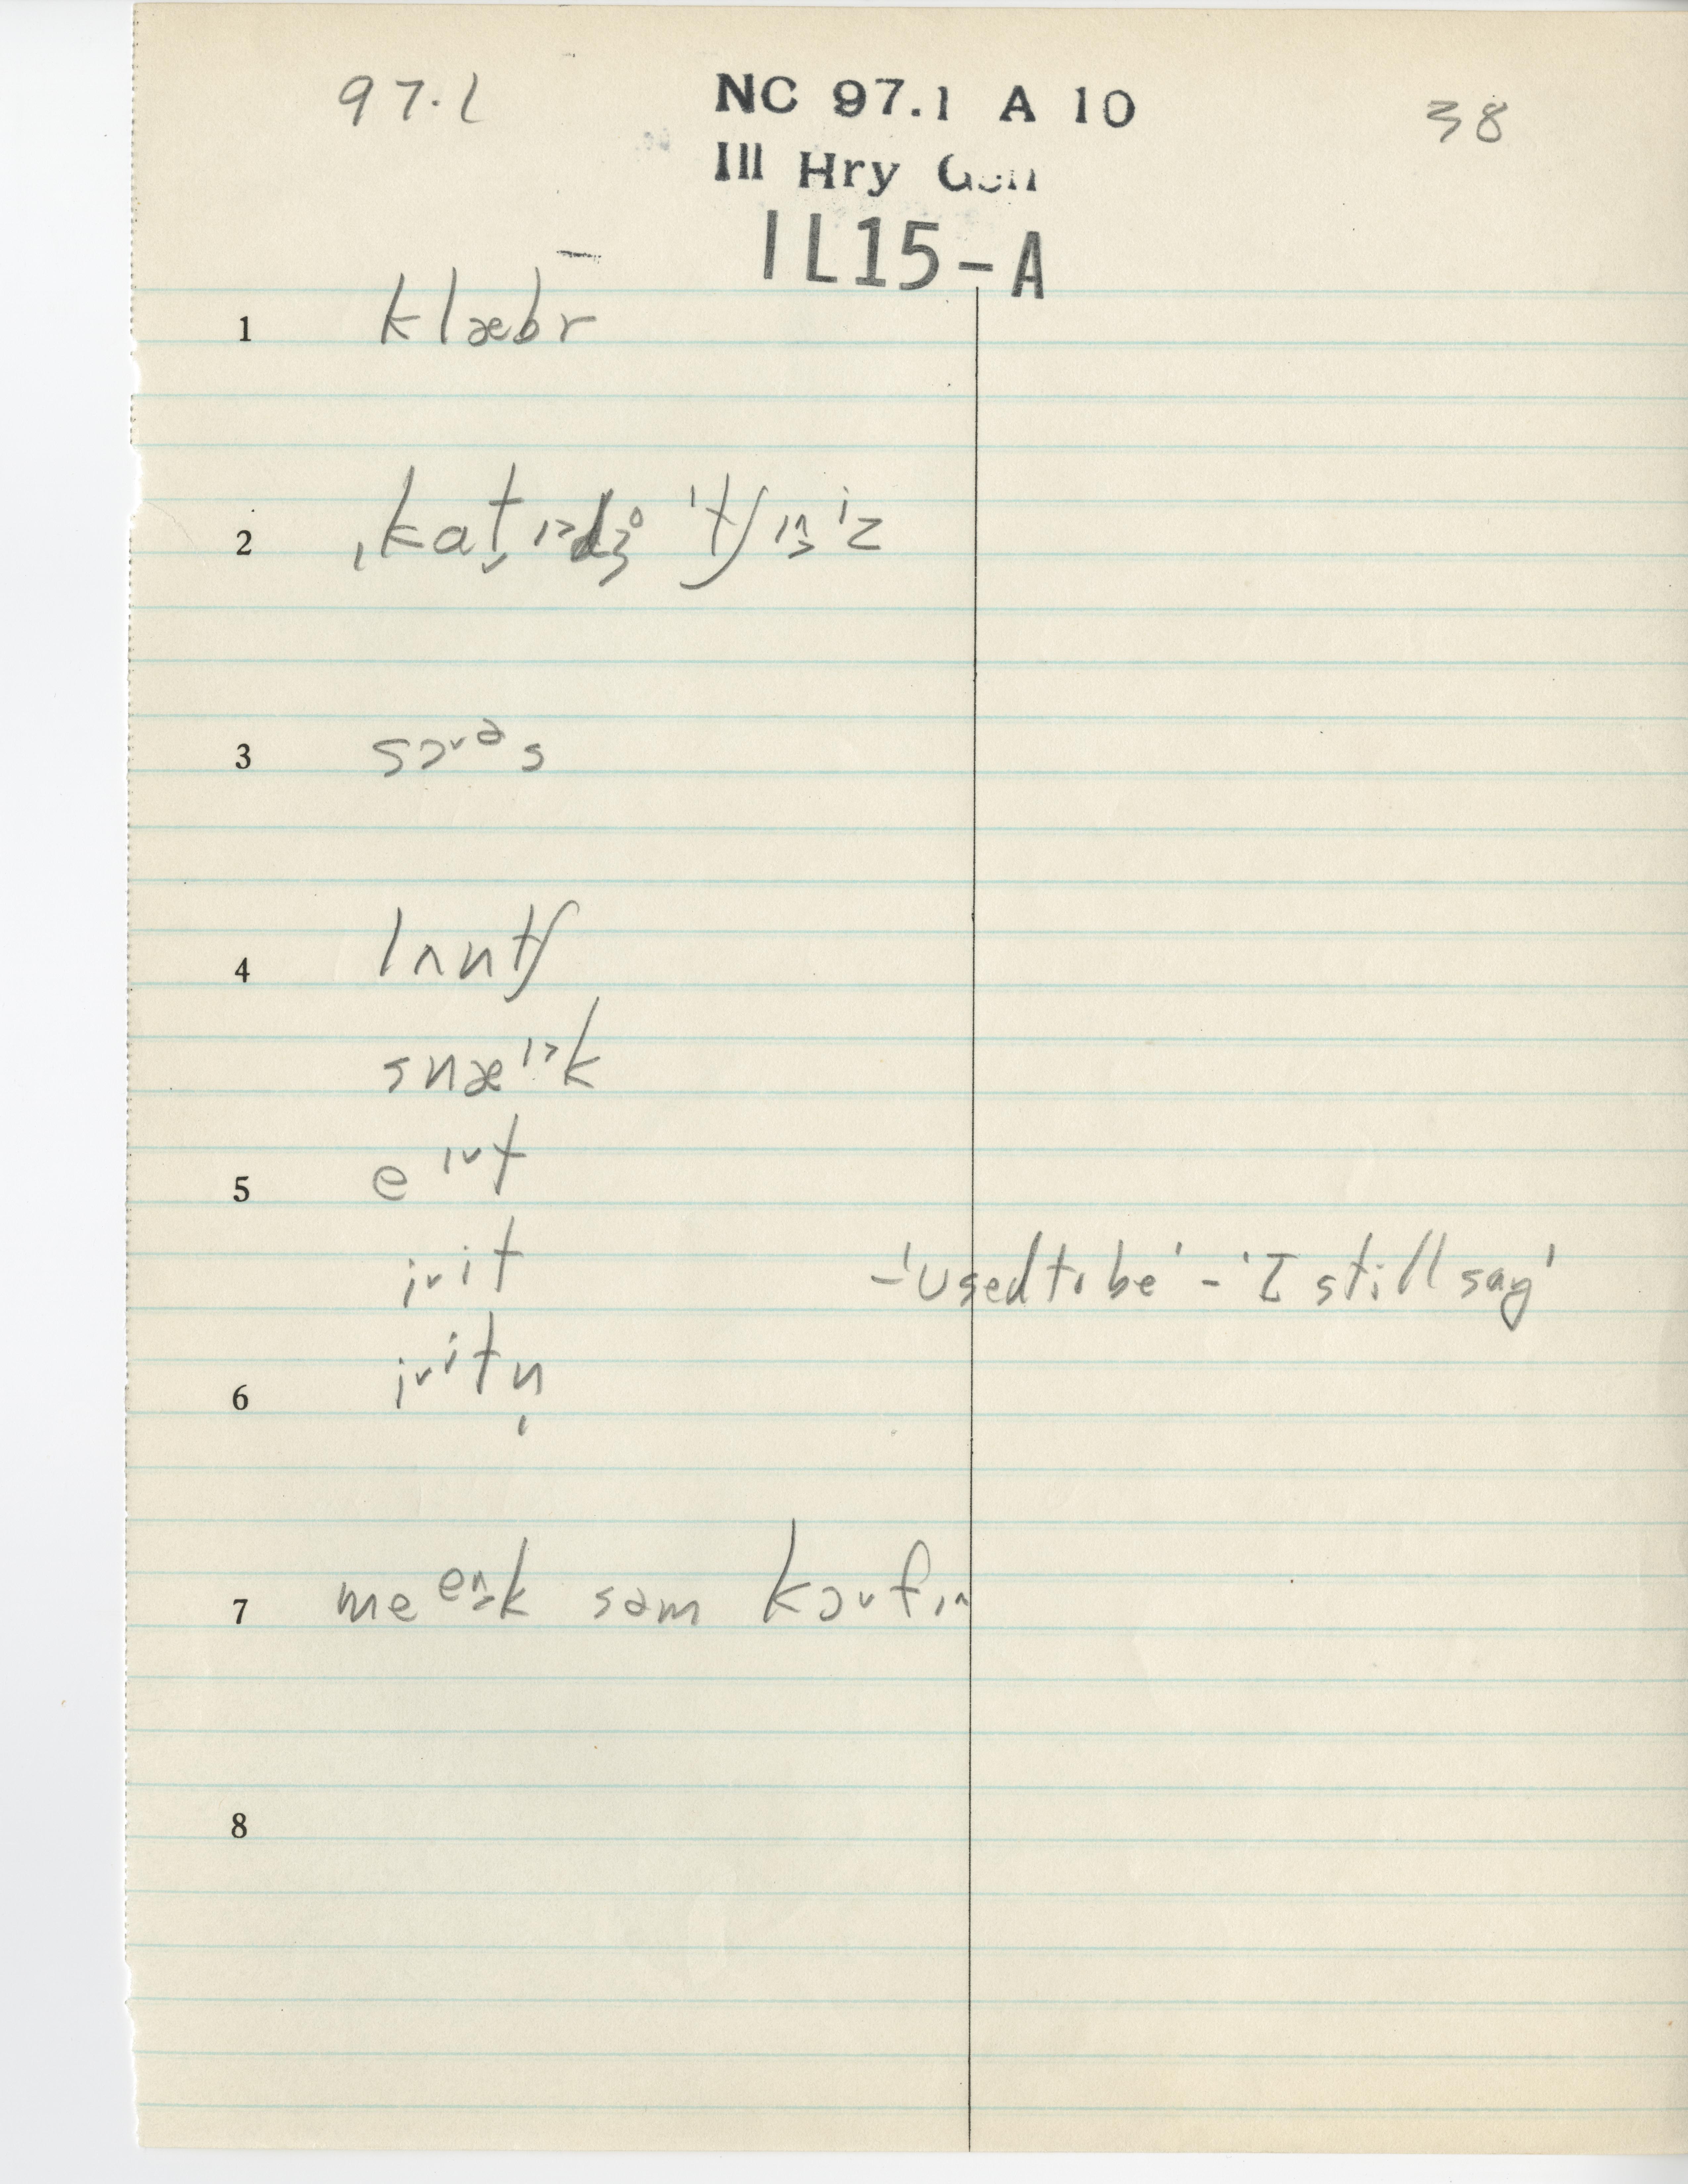 97.1 NC 97.1 A 10 38
Ill Hry Gen
IL15-A
1 klæbr
2 ˌkat̬ɪ˃dʒ̊ ˈtʃɪ˄˃iz
3 sɔ˅əs
4 lʌntʃ
snæɪ˃k
5 eɪ˅t
i˅it – 'used to be' – 'I still say'
6 i˅itn̩
7 mee˄˃k səm kɔ˅fɪ˄
8